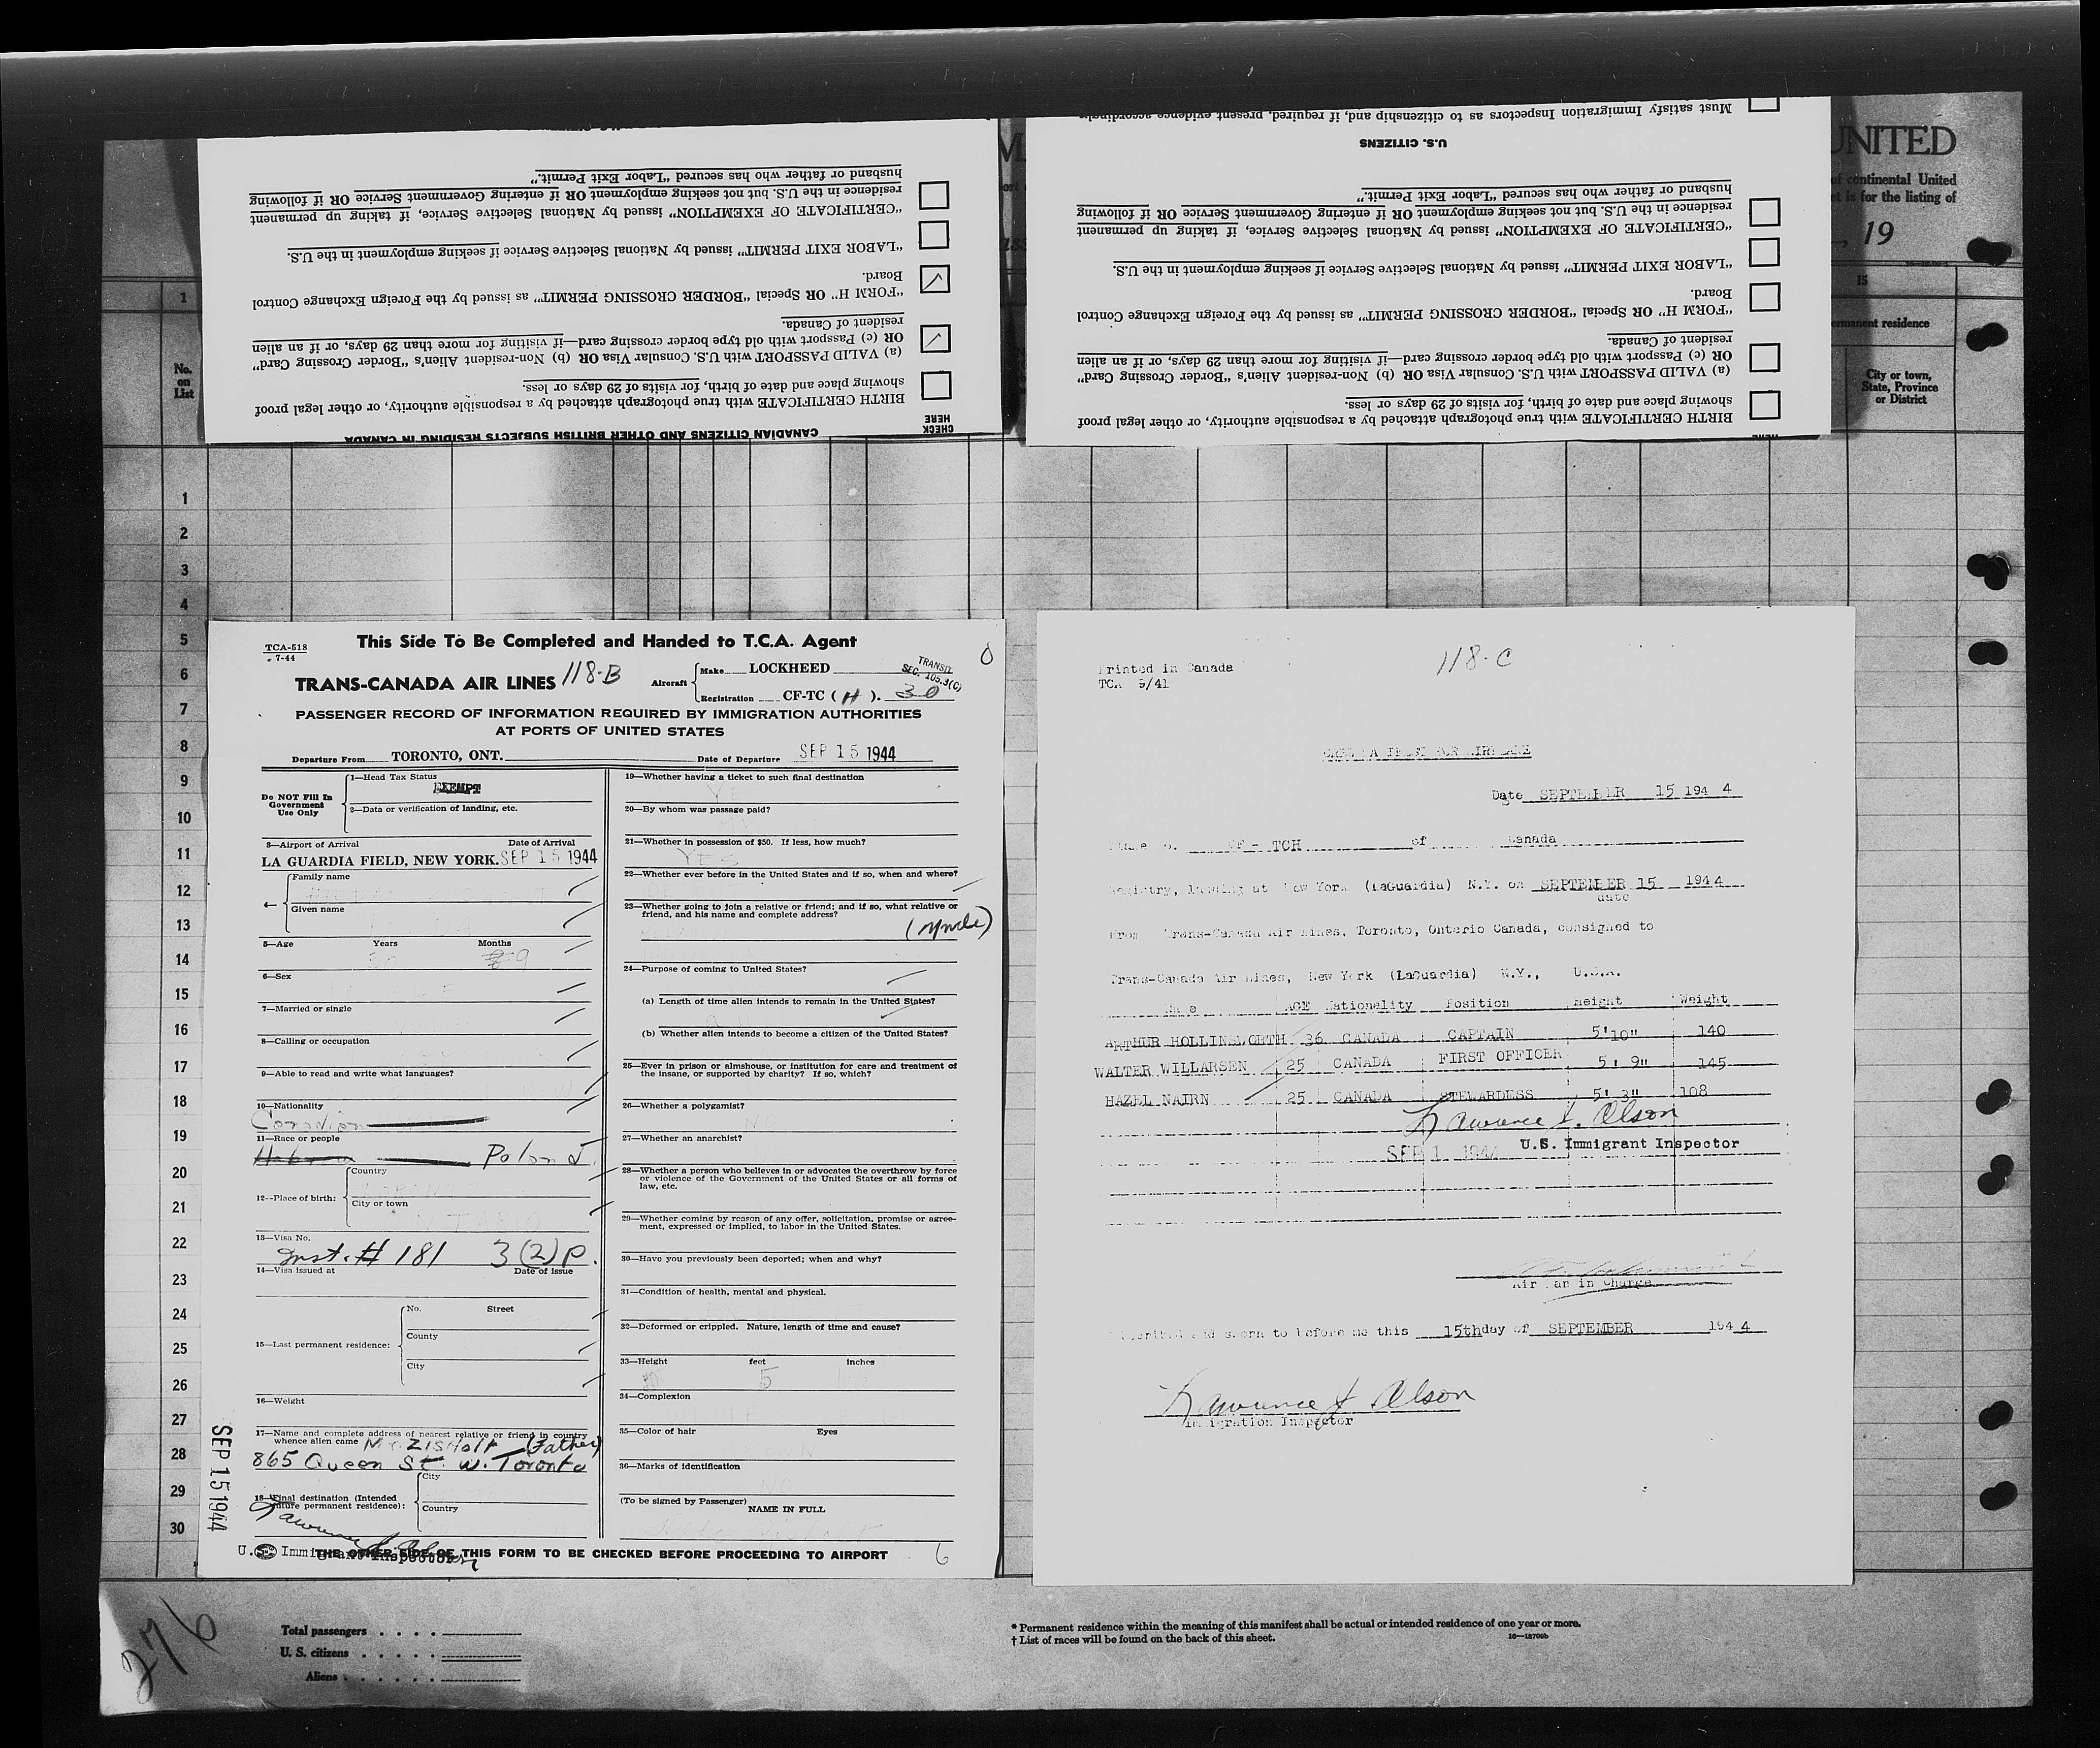 CHECK
HERE
CANADIAN CITIZENS AND OTHER BRITISH SUBJECTS RESIDING IN CANADA
BIRTH CERTIFICATE with true photograph attached by a responsible authority, or other legal proof
showing place and date of birth, for visits of 29 days or less.
(a) VALID PASSPORT with U.S. Consular Visa OR (b) Non-resident Alien's "Border Crossing Card"
OR (c) Passport with old type border crossing card—if visiting for more than 29 days, or if an alien
resident of Canada.
"FORM H" OR Special "BORDER CROSSING PERMIT" as issued by the Foreign Exchange Control
Board.
"LABOR EXIT PERMIT" issued by National Selective Service if seeking employment in the U.S.
"CERTIFICATE OF EXEMPTION" issued by National Selective Service, if taking up permanent
residence in the U.S. but not seeking employment OR if entering Government Service OR if following
husband or father who has secured "Labor Exit Permit."
HERE
BIRTH CERTIFICATE with true photograph attached by a responsible authority, or other legal proof
showing place and date of birth, for visits of 29 days or less.
(a) VALID PASSPORT with U.S. Consular Visa OR (b) Non-resident Alien's "Border Crossing Card"
OR (c) Passport with old type border crossing card—if visiting for more than 29 days, or if an alien
resident of Canada.
"FORM H" OR Special "BORDER CROSSING PERMIT" as issued by the Foreign Exchange Control
Board.
"LABOR EXIT PERMIT" issued by National Selective Service if seeking employment in the U.S.
"CERTIFICATE OF EXEMPTION" issued by National Selective Service, if taking up permanent
residence in the U.S. but not seeking employment OR if entering Government Service OR if following
husband or father who has secured "Labor Exit Permit."
U.S. CITIZENS
Must satisfy Immigration Inspectors as to citizenship and, if required, present evidence accordingly
UNITED
of continental United
is for the listing of
, 19
15
permanent residence
City or town,
State, Province
or District
1
No.
on
List
1
2
3
4
5
6
7
8
9
10
11
12
13
14
15
16
17
18
19
20
21
22
23
24
25
26
27
28
29
30
TCA-518
7-44
This Side To Be Completed and Handed to T.C.A. Agent
TRANS-CANADA AIR LINES 118-B
Aircraft Make LOCKHEED
Registration CF-TC ( H ). 30
TRANSIT
SEC. 105.3(C)
PASSENGER RECORD OF INFORMATION REQUIRED BY IMMIGRATION AUTHORITIES
AT PORTS OF UNITED STATES
Departure From TORONTO, ONT. Date of Departure SEP 15 1944
Do NOT Fill In
Government
Use Only
1—Head Tax Status
EXEMPT
2—Data or verification of landing, etc.
3—Airport of Arrival Date of Arrival
LA GUARDIA FIELD, NEW YORK. SEP 15 1944
4—
Family name
Given name
5—Age Years Months
9
6—Sex
7—Married or single
8—Calling or occupation
9—Able to read and write what languages?
10—Nationality
Canadian
11—Race or people
Polon J.
12—Place of birth:
Country
City or town
ONTARIO
13—Visa No.
Inst. # 181 3(2)P.
14—Visa issued at Date of issue
15—Last permanent residence:
No. Street
County
City
16—Weight
17—Name and complete address of nearest relative or friend in country
whence alien came Mr. Zisholt (Father)
865 Queen St. W. Toronto
18—Final destination (Intended
future permanent residence):
City
Country
Lawrence J. Olson
U.S. Immigrant Inspector
SEP 15 1944
19—Whether having a ticket to such final destination
20—By whom was passage paid?
21—Whether in possession of $50. If less, how much?
YES
22—Whether ever before in the United States and if so, when and where?
23—Whether going to join a relative or friend; and if so, what relative or
friend, and his name and complete address?
(Uncle)
24—Purpose of coming to United States?
(a) Length of time alien intends to remain in the United States?
(b) Whether alien intends to become a citizen of the United States?
25—Ever in prison or almshouse, or institution for care and treatment of
the insane, or supported by charity? If so, which?
26—Whether a polygamist?
27—Whether an anarchist?
28—Whether a person who believes in or advocates the overthrow by force
or violence of the Government of the United States or all forms of
law, etc.
29—Whether coming by reason of any offer, solicitation, promise or agree-
ment, expressed or implied, to labor in the United States.
30—Have you previously been deported; when and why?
31—Condition of health, mental and physical.
32—Deformed or crippled. Nature, length of time and cause?
33—Height feet inches
5
34—Complexion
35—Color of hair Eyes
36—Marks of identification
(To be signed by Passenger)
NAME IN FULL
THE OTHER SIDE OF THIS FORM TO BE CHECKED BEFORE PROCEEDING TO AIRPORT
6
Printed in Canada
TCA 9/41
118-C
Date SEPTEMBER 15 1944
CF - TCH of Canada
Registry, landing at New York (LaGuardia) N.Y. on SEPTEMBER 15 1944
date
From Trans-Canada Air Lines, Toronto, Ontario Canada, consigned to
Trans-Canada Air Lines, New York (LaGuardia) N.Y., U.S.A.
Name AGE Nationality Position Height Weight
ARTHUR HOLLINSWORTH 36 CANADA CAPTAIN 5'10" 140
WALTER WILLARSEN 25 CANADA FIRST OFFICER 5' 9" 145
HAZEL NAIRN 25 CANADA STEWARDESS 5' 3" 108
Lawrence J. Olson
U.S. Immigrant Inspector
Airman in Charge
Subscribed and sworn to before me this 15th day of SEPTEMBER 1944
Lawrence J. Olson
Immigration Inspector
276
Total passengers
U. S. citizens
Aliens
* Permanent residence within the meaning of this manifest shall be actual or intended residence of one year or more.
† List of races will be found on the back of this sheet.